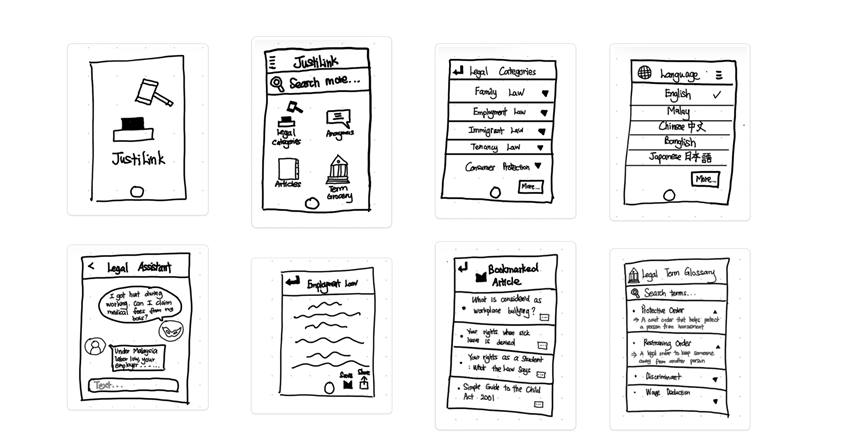 JustiLink
JustiLink
Search more...
Legal
Categories
Anonymous
Articles
Term
Grocery
Legal Categories
Family Law
Employment Law
Immigrant Law
Tenancy Law
Consumer Protection
More...
Language
English
Malay
Chinese 中文
Banglish
Japanese 日本語
More...
Legal Assistant
I got hurt during
working. Can I claim
medical fees from my
boss?
Under Malaysia
labor law, your
employer......
Text...
Employment Law
Save
Share
Bookmarked
Article
What is considered as
workplace bullying?
Your rights when sick
leave is denied
Your rights as a Student
: What the Law Says
Simple Guide to the Child
Act 2001
Legal Term Glossary
Search terms...
Protective Order
→ A court order that helps protect
a person from harassment
Restraining Order
→ A legal order to keep someone
away from another person
Discriminant
Wage Deduction